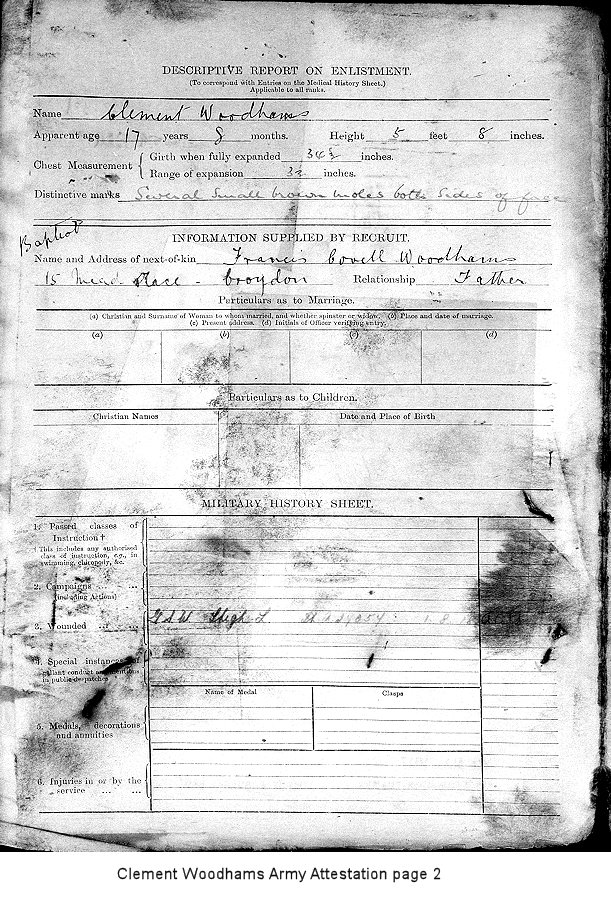 DESCRIPTIVE REPORT ON ENLISTMENT.
(To correspond with Entries on the Medical History Sheet.)
Applicable to all ranks.
Name Clement Woodhams
Apparent age 17 years 8 months. Height 5 feet 8 inches.
Chest Measurement { Girth when fully expanded 34½ inches.
Range of expansion 3½ inches.
Distinctive marks Several small brown moles both sides of face
Baptist
INFORMATION SUPPLIED BY RECRUIT.
Name and Address of next-of-kin Francis Covell Woodhams
15 Mead Place - Croydon Relationship Father
Particulars as to Marriage.
(a) Christian and Surname of Woman to whom married, and whether spinster or widow. (b) Place and date of marriage.
(c) Present address. (d) Initials of Officer verifying entry.
(a) (b) (c) (d)
Particulars as to Children.
Christian Names Date and Place of Birth
MILITARY HISTORY SHEET.
1. Passed classes of
Instruction †
† This includes any authorised
class of instruction, e.g., in
swimming, chiropody, &c.
2. Campaigns ...
(including Actions)
3. Wounded ... ... G.S.W. thigh L
4. Special instances of
gallant conduct and mentions
in public despatches
Name of Medal Clasps
5. Medals, decorations
and annuities
6. Injuries in or by the
service ... ...
Clement Woodhams Army Attestation page 2